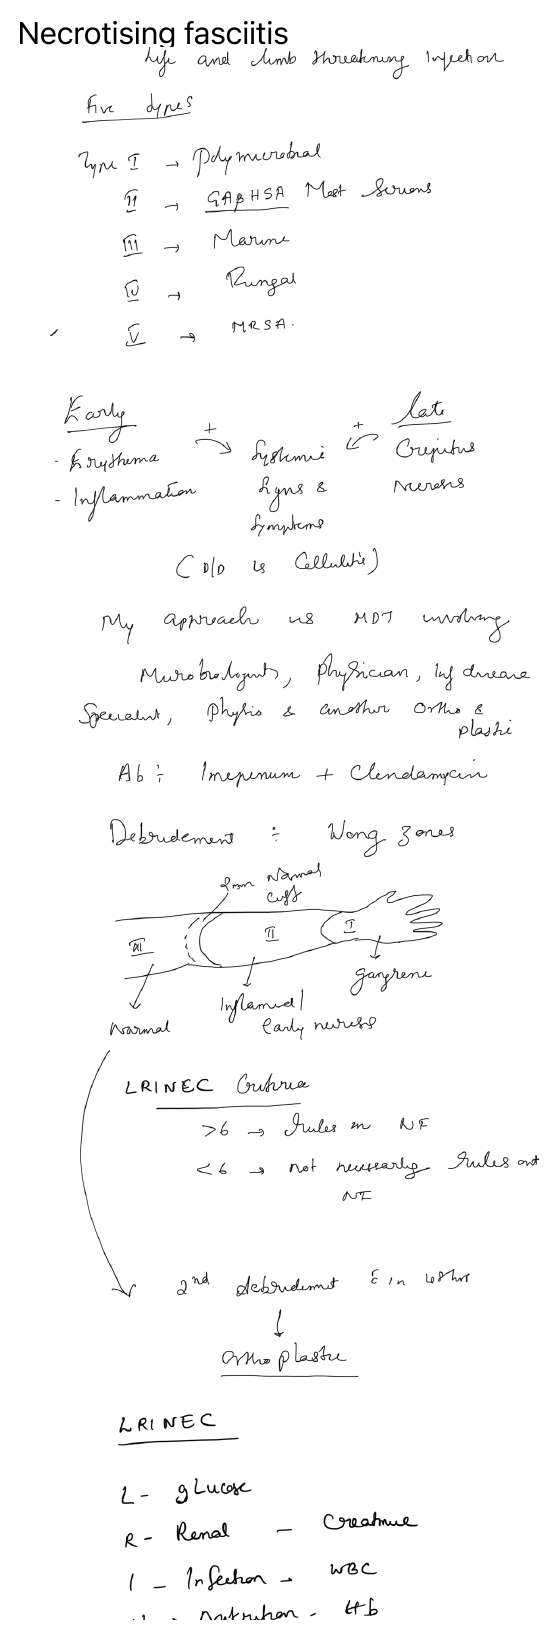 Necrotising fasciitis
Life and limb threatening Infection
Five types
Type I → Polymicrobial
II → GABHSA Most Serious
III → Marine
IV → Fungal
V → MRSA.
Early + + late
- Erythema Systemic Crepitus
- Inflammation Signs & Necrosis
Symptoms
(D/D is Cellulitis)
My approach is MDT involving
Microbiologist, Physician, Inf disease
Specialist, Physio & another Ortho &
plastic
Ab ÷ Imepenum + Clendamycin
Debridement ÷ Wong zones
2mm Normal
Cuff
III II I
gangrene
Normal Inflamed/
Early necrosis
LRINEC Criteria
>6 → rules in NF
<6 → not necessarily rules out
NF
2nd debridement in 48hrs
↓
Orthoplastic
LRINEC
L - gLucose
R - Renal - Creatinine
I - Infection - WBC
N - Nutrition - Hb